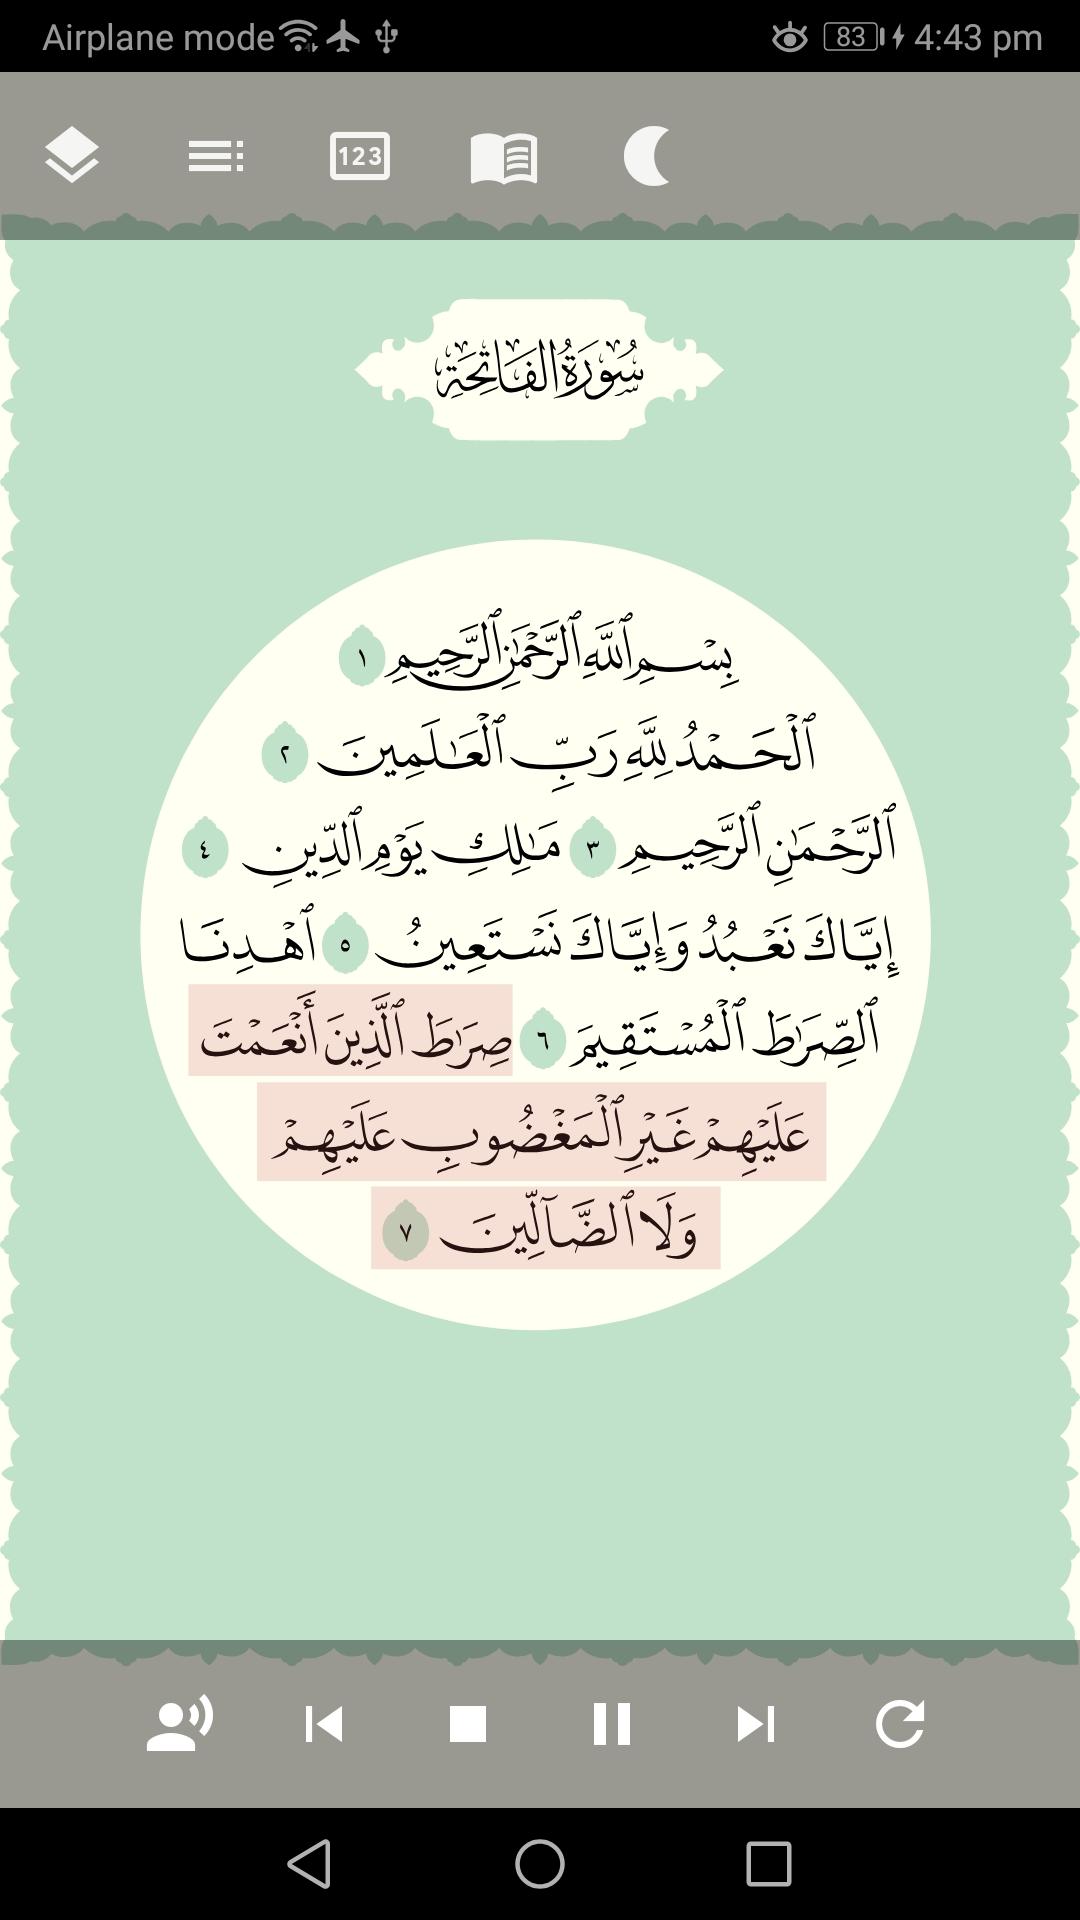 Airplane mode 83 4:43 pm
123
سُورَةُ الفَاتِحَةِ
بِسْمِ ٱللَّهِ ٱلرَّحْمَٰنِ ٱلرَّحِيمِ ١
ٱلْحَمْدُ لِلَّهِ رَبِّ ٱلْعَٰلَمِينَ ٢
ٱلرَّحْمَٰنِ ٱلرَّحِيمِ ٣ مَٰلِكِ يَوْمِ ٱلدِّينِ ٤
إِيَّاكَ نَعْبُدُ وَإِيَّاكَ نَسْتَعِينُ ٥ ٱهْدِنَا
ٱلصِّرَٰطَ ٱلْمُسْتَقِيمَ ٦ صِرَٰطَ ٱلَّذِينَ أَنْعَمْتَ
عَلَيْهِمْ غَيْرِ ٱلْمَغْضُوبِ عَلَيْهِمْ
وَلَا ٱلضَّآلِّينَ ٧